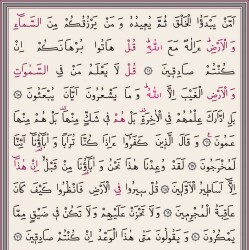 أَمَّنْ يَبْدَؤُا الْخَلْقَ ثُمَّ يُعِيدُهُ وَ مَنْ يَرْزُقُكُمْ مِنَ السَّمَاءِ
وَ الْأَرْضِ أَإِلَهٌ مَعَ اللَّهِ قُلْ هَاتُوا بُرْهَانَكُمْ إِنْ
كُنْتُمْ صَادِقِينَ قُلْ لَا يَعْلَمُ مَنْ فِي السَّمَوَاتِ
وَ الْأَرْضِ الْغَيْبَ إِلَّا اللَّهُ وَ مَا يَشْعُرُونَ أَيَّانَ يُبْعَثُونَ
بَلِ ادَّارَكَ عِلْمُهُمْ فِي الْآخِرَةِ بَلْ هُمْ فِي شَكٍّ مِنْهَا بَلْ هُمْ مِنْهَا
عَمُونَ وَ قَالَ الَّذِينَ كَفَرُوا أَإِذَا كُنَّا تُرَابًا وَ آبَاؤُنَا أَئِنَّا
لَمُخْرَجُونَ لَقَدْ وُعِدْنَا هَذَا نَحْنُ وَ آبَاؤُنَا مِنْ قَبْلُ إِنْ هَذَا
إِلَّا أَسَاطِيرُ الْأَوَّلِينَ قُلْ سِيرُوا فِي الْأَرْضِ فَانْظُرُوا كَيْفَ كَانَ
عَاقِبَةُ الْمُجْرِمِينَ وَ لَا تَحْزَنْ عَلَيْهِمْ وَ لَا تَكُنْ فِي ضَيْقٍ مِمَّا
يَمْكُرُونَ وَ يَقُولُونَ مَتَى هَذَا الْوَعْدُ إِنْ كُنْتُمْ صَادِقِينَ